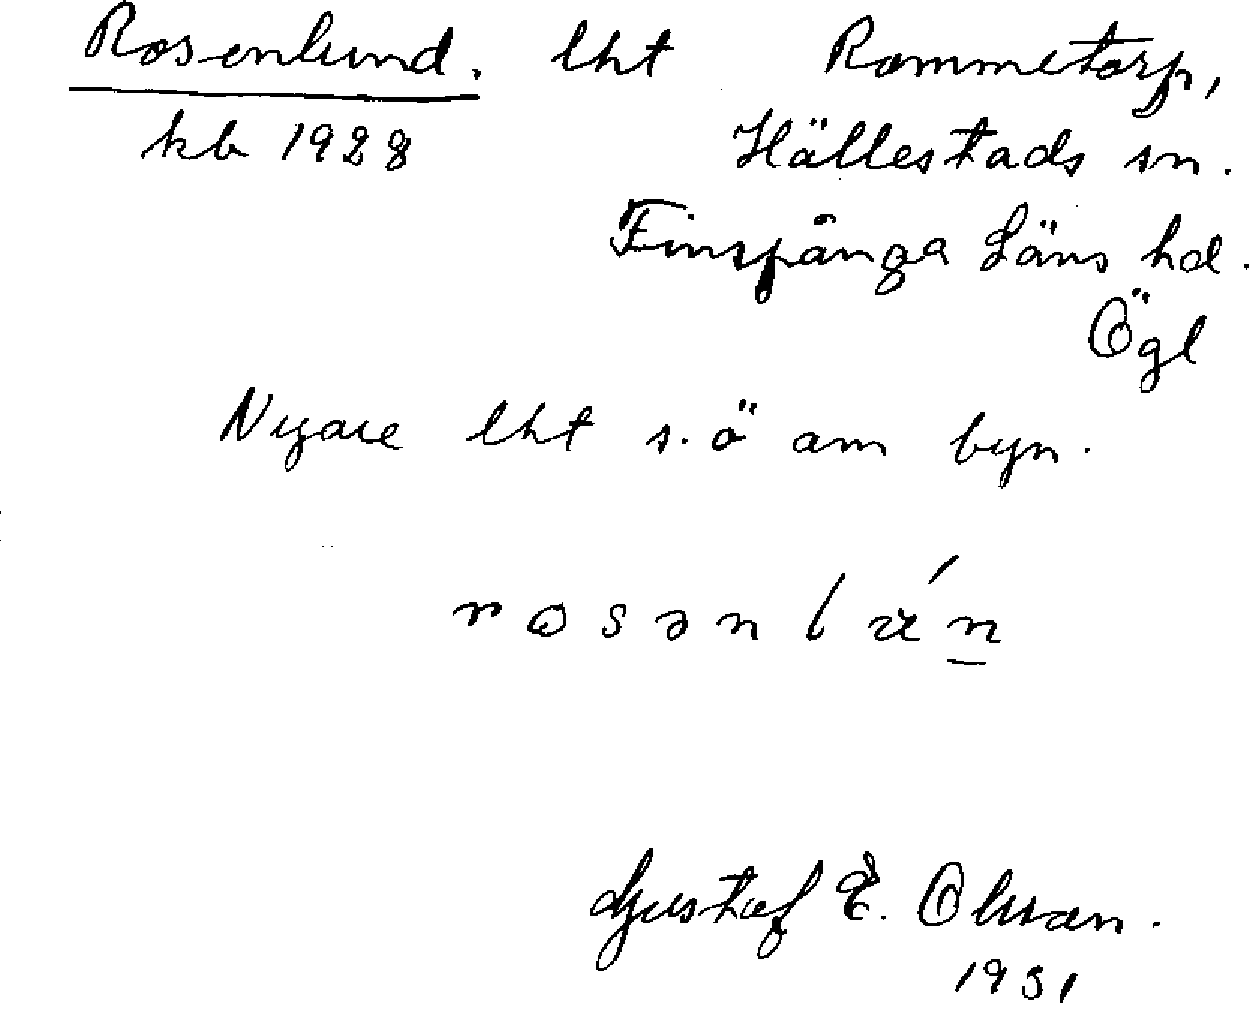 Rosenlund. lht Rommetorp,
kb 1928 Hällestads sn.
Finspånga Läns hd.
Ögl
Nyare lht s.ö om byn.
Gustaf E. Olsson.
1931